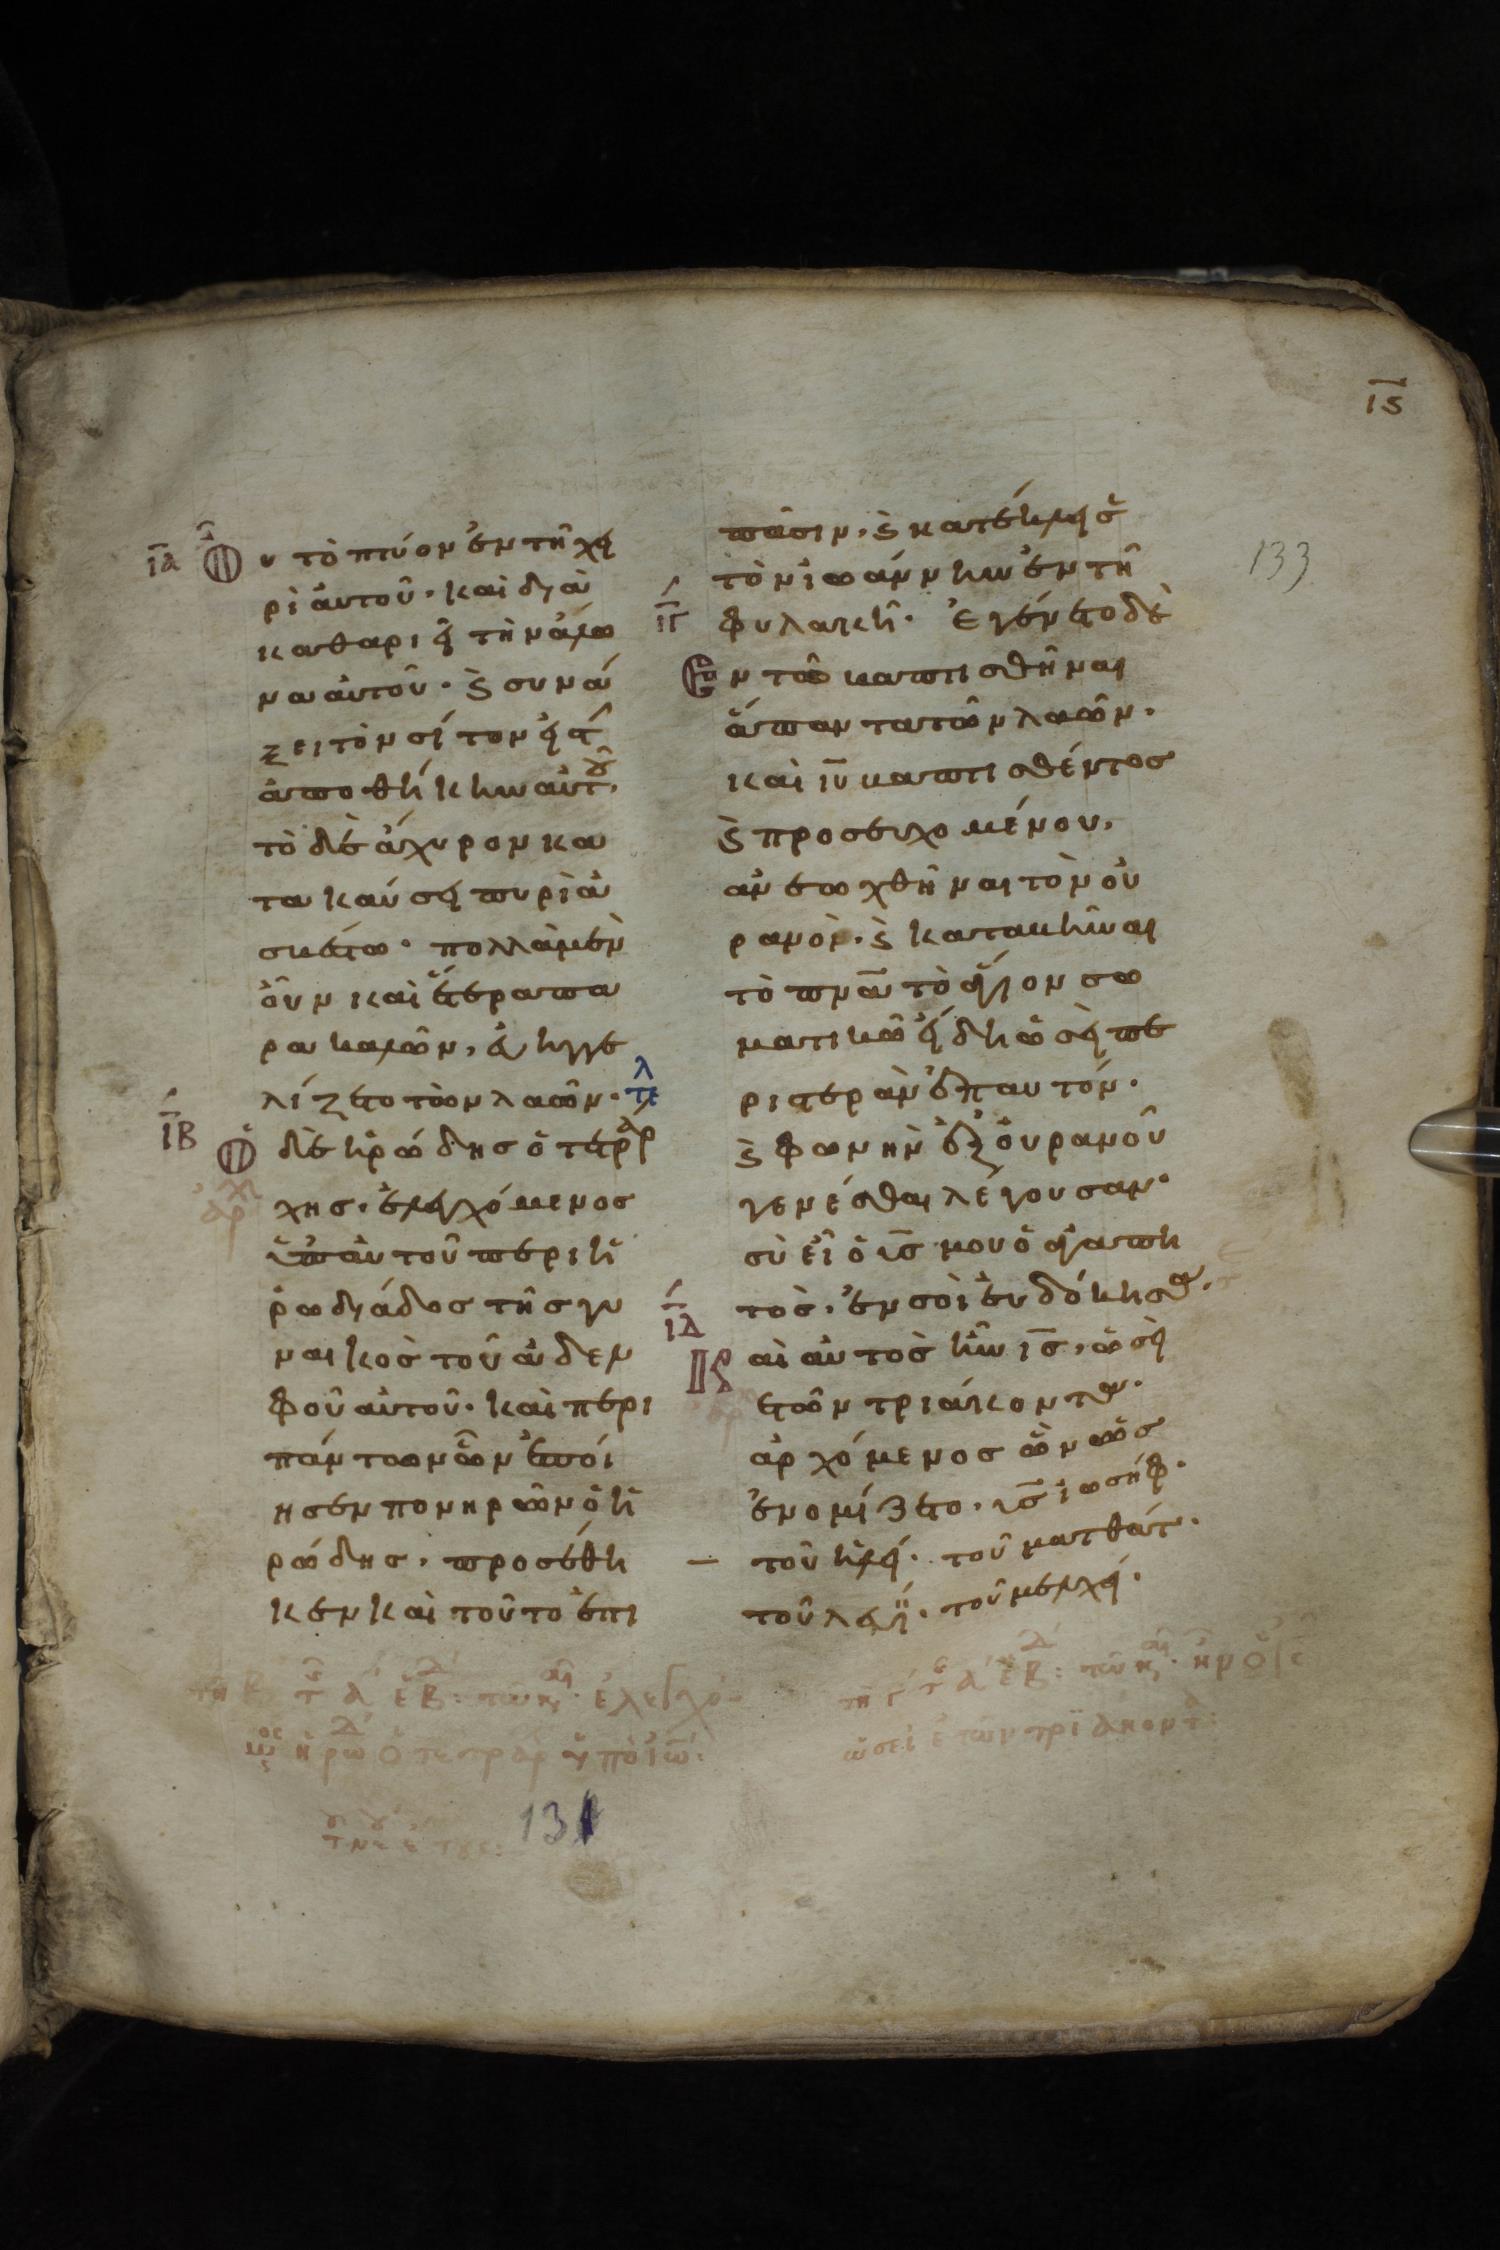 ιϛ
133
ια Ου τὸ πτύον ἐν τῆ χει
ρὶ ἀυτοῦ· καὶ δια
καθαριεῖ τὴν ἅλω
να αὐτοῦ· ϗ συνά
ζει τὸν σίτον εἰς τ
ἀποθήκην αὐτοῦ,
τὸ δὲ ἄχυρον κα
τακαύσει πυρὶ ἀ
σβέστω· πολλὰ μὲν
οὖν καὶ ἕτερα πα
ρακαλῶν, εὐηγγε
λίζετο τὸν λαόν· τε λ
ιβ Ὁ δὲ ἡρώδης ὁ τετράρ
χης, ἐλεγχόμενος
ὑπ' αὐτοῦ περὶ ἡ
ρωδιάδος τῆς γυ
ναικὸς τοῦ ἀδελ
φοῦ αὐτοῦ· καὶ περι
πάντων ὧν ἐποί
ησεν πονηρῶν ὁ ἡ
ρώδης, προσέθη
κεν καὶ τοῦτο ἐπι
πᾶσιν, ϗ κατέκλεισε
τὸν ἰωάννην ἐν τῆ
ιγ φυλακῆ· Ἐγένετο δὲ
Ἐν τῶ βαπτισθῆναι
ἅπαντα τὸν λαὸν·
καὶ ιυ βαπτισθέντος
ϗ προσευχομένου,
ἀνεωχθῆναι τὸν οὐ
ρανὸν· ϗ καταβῆναι
τὸ πνα τὸ ἅγιον σω
ματικῶ εἴδη ὡσεὶ πε
ριστερὰν ἐπ αυτόν·
ϗ φωνὴν ἐξ οὐρανοῦ
γενέσθαι λέγουσαν·
σὺ εἶ ὁ υς μου ὁ ἀγαπη
τὸς, ἐν σοὶ εὐδόκησα·
ιδ Καὶ αὐτὸς ἦν ις, ὡσεὶ
ἐτῶν τριάκοντα·
ἀρχόμενος ὢν ὡς
ἐνομίζετο, υς ἰωσήφ·
τοῦ ἡλεί· τοῦ ματθάτ·
τοῦ λευΐ· τοῦ μελχεί·
131